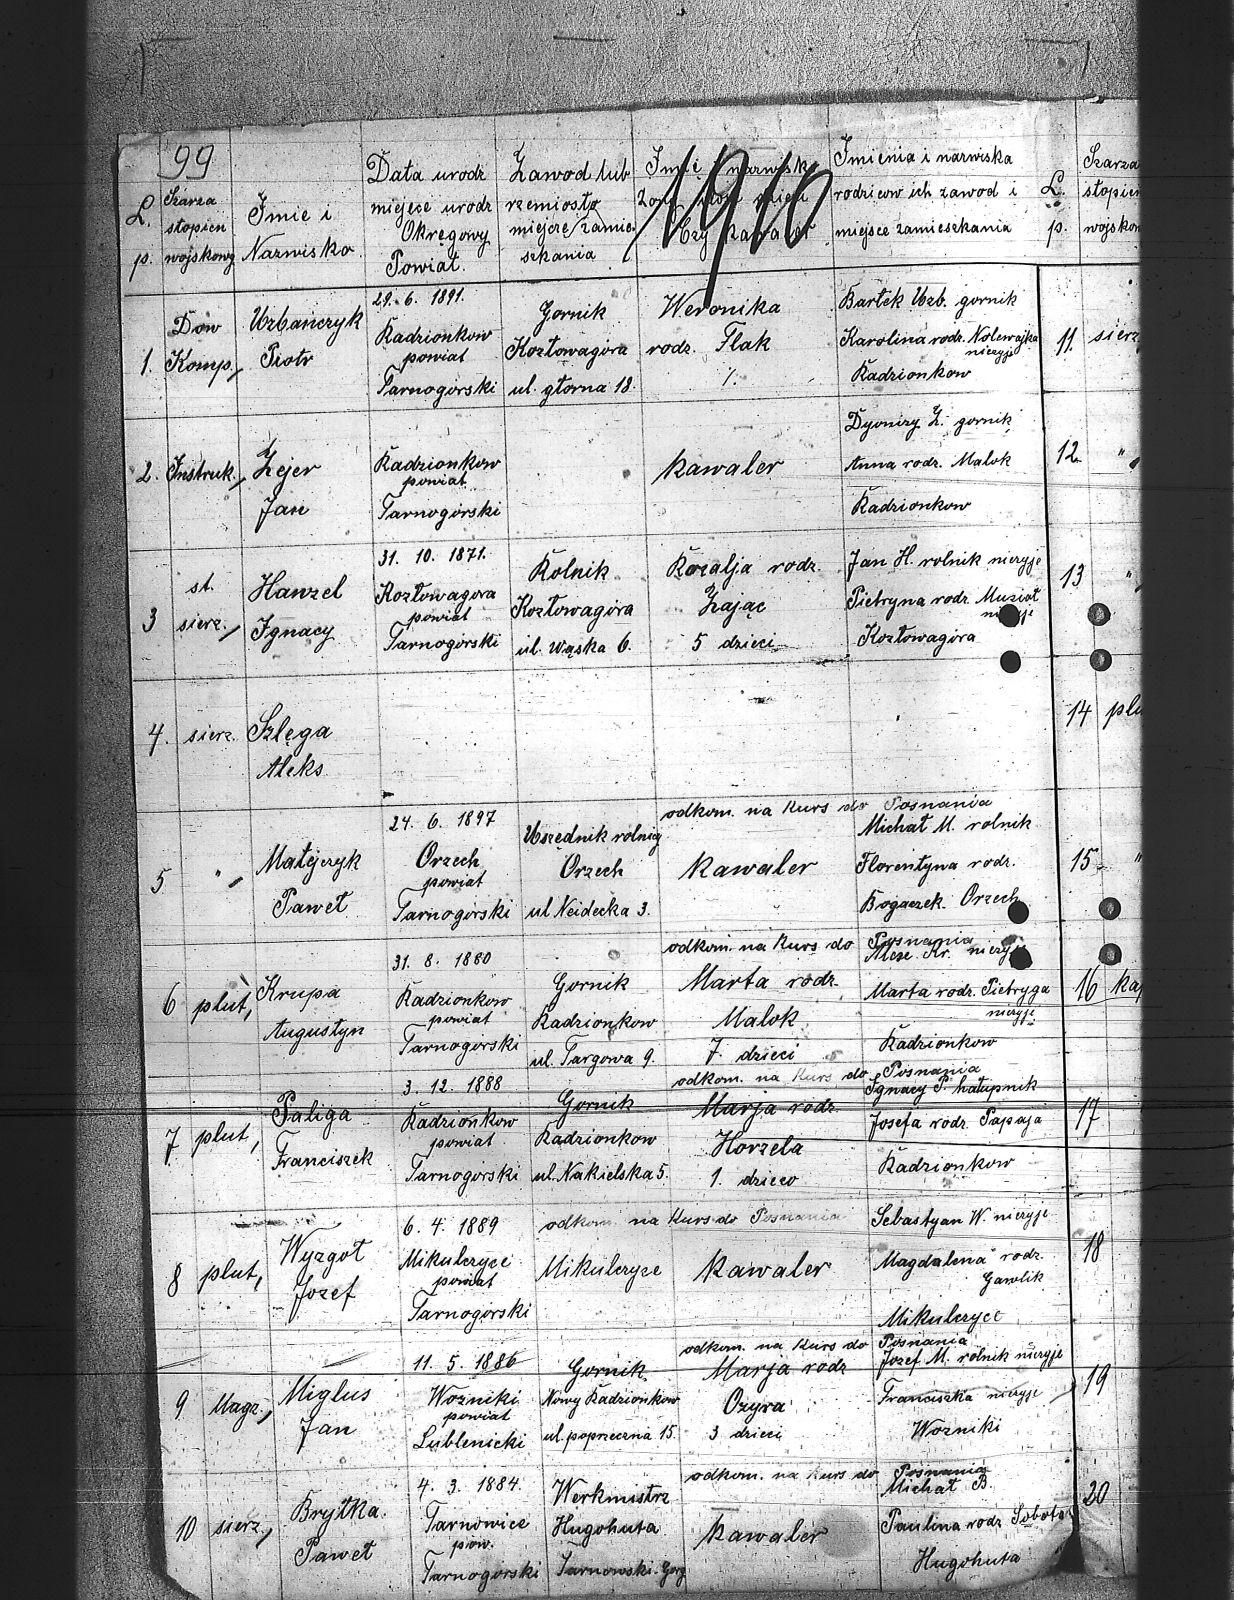 99
1910
L. p.
Szarza stopien wojskowy
Imie i Nazwisko
Data urodz miejsce urodz Okręgowy Powiat.
Zawod lub rzemiosto miejsce zamie. szkania
Imie i nazwisk
Czy kawaler
Imienia i nazwiska rodzicow ich zawod i miejsce zamieszkania
L. p.
Szarza stopien wojskow
29. 6. 1891.
1. Dow Komp. Urbańczyk Piotr
Radzionkow powiat Tarnogórski
Gornik Kozłowagóra ul. głorna 18.
Weronika rodz. Flak 1.
Bartek Urb. gornik
Karolina rodz. Nolewajka nieżyje
Radzionkow
11. sierz
2. Instruk. Zejer Jan
Radzionkow powiat Tarnogórski
kawaler
Dyonizy Z. gornik
Anna rodz. Malok
Radzionkow
12. "
31. 10. 1871.
3 st. sierz. Hanzel Ignacy
Kozłowagóra powiat Tarnogórski
Rolnik Kozłowagóra ul. Wąska 6.
Rozalja rodz. Zając 5 dzieci
Jan H. rolnik nieżyje
Pietryna rodz. Muzioł
Kozłowagóra
13 "
4. sierz. Szlęga Aleks.
14 plu
odkom. na Kurs do Posnania
24. 6. 1897
5 " Matejczyk Paweł
Orzech powiat Tarnogórski
Urzędnik rolnicy Orzech ul Neidecka 3.
kawaler
Michał M. rolnik
Florentyna rodz.
Bogaczek. Orzech
15 "
odkom. na Kurs do Posnania
31. 8. 1880
6 plut, Krupa Augustyn
Radzionkow powiat Tarnogorski
Gornik Radzionkow ul. Targowa 9.
Marta rodz. Malok 7. dzieci
Kr. nieżyje
Marta rodz. Pietryga nieżyje
Radzionkow
16 kap
odkom. na Kurs do Posnania
3. 12. 1888
7. plut, Paliga Franciszek
Radzionkow powiat Tarnogórski
Gornik Radzionkow ul. Nakielska 5.
Marja rodz. Horzela 1. dzieco
Ignacy P. hałupnik
Josefa rodz. Papaja
Radzionkow
17
odkom. na Kurs do Posnania
6. 4. 1889
8 plut, Wyzgoł Jozef
Mikulczyce powiat Tarnogorski
Mikulczyce
kawaler
Sebastyan W. nieżyje
Magdalena rodz. Gawlik
Mikulczyce
18
odkom. na Kurs do Posnania
11. 5. 1886
9 Magz, Miglus Jan
Wozniki powiat Lublenicki
Gornik Nowy Radzionkow ul. poprzeczna 15.
Marja rodz Ozyra 3 dzieci
Jozef M. rolnik nieżyje
Franciszka nieżyje
Wozniki
19
odkom. na Kurs do Posnania
4. 3. 1884
10 sierz, Brytka Paweł
Tarnowice pow. Tarnogorski
Werkmistrz Hugohuta Tarnowski. Gorg
kawaler
Michał B.
Paulina rodz Sobota
Hugohuta
20